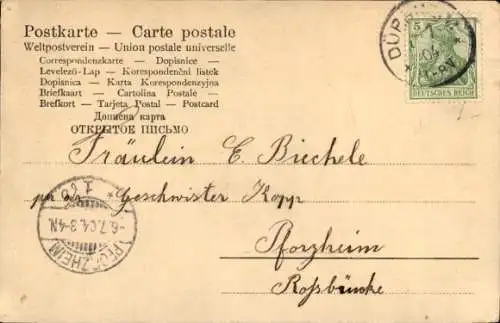 Postkarte — Carte postale
Weltpostverein – Union postale universelle
Correspondenzkarte – Dopisnice –
Levelező-Lap – Korespondenční lístek
Dopisnica – Karta Korespondenzyjna
Briefkaart – Cartolina Postale –
Brefkort – Tarjeta Postal – Postcard
Дописна карта
ОТКРЫТОЕ ПИСЬМО
5
DEUTSCHES REICH
Fräulein C. Biechele
Geschwister Kopp
Pforzheim
Roßbrücke
PFORZHEIM
-6.7.04.3-4N.